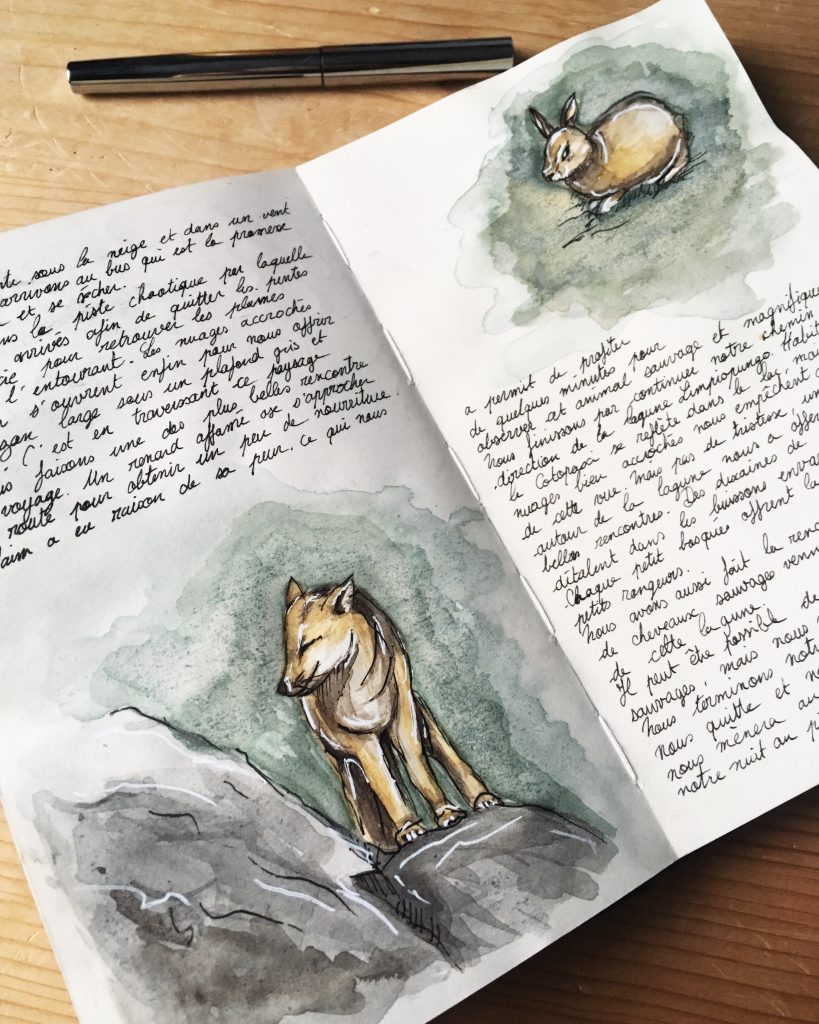 sous la neige et dans un vent
arrivons au bus qui est la promesse
et se sécher.
la piste chaotique par laquelle
arrivés afin de quitter les pentes
pour retrouver les plaines
l'entourant. Les nuages accrochés
s'ouvrent enfin pour nous offrir
large sous un plafond gris et
C'est en traversant ce paysage
faisons une des plus belles rencontre
voyage. Un renard affamé ose s'approcher
route pour obtenir un peu de nourriture.
a eu raison de sa peur. Ce qui nous
a permit de profiter
de quelques minutes pour
observer cet animal sauvage et magnifique
Nous finissons par continuer notre chemin
direction de la lagune Limpiopungo. Habit
le Cotopaxi se reflète dans le lac, mai
nuages bien accrochés nous empêchent
de cette vue. Mais pas de tristesse, un
autour de la lagune nous a offer
belles rencontres. Des dizaines de
détalent dans les buissons enva
Chaque petit bosquet offrant la
petits rongeurs.
Nous avons aussi fait la renc
de cheveaux sauvages venu
de cette lagune.
Il peut être possible de
sauvages, mais nous
Nous terminons notre
nous quitte et no
nous mènera au
notre nuit au p